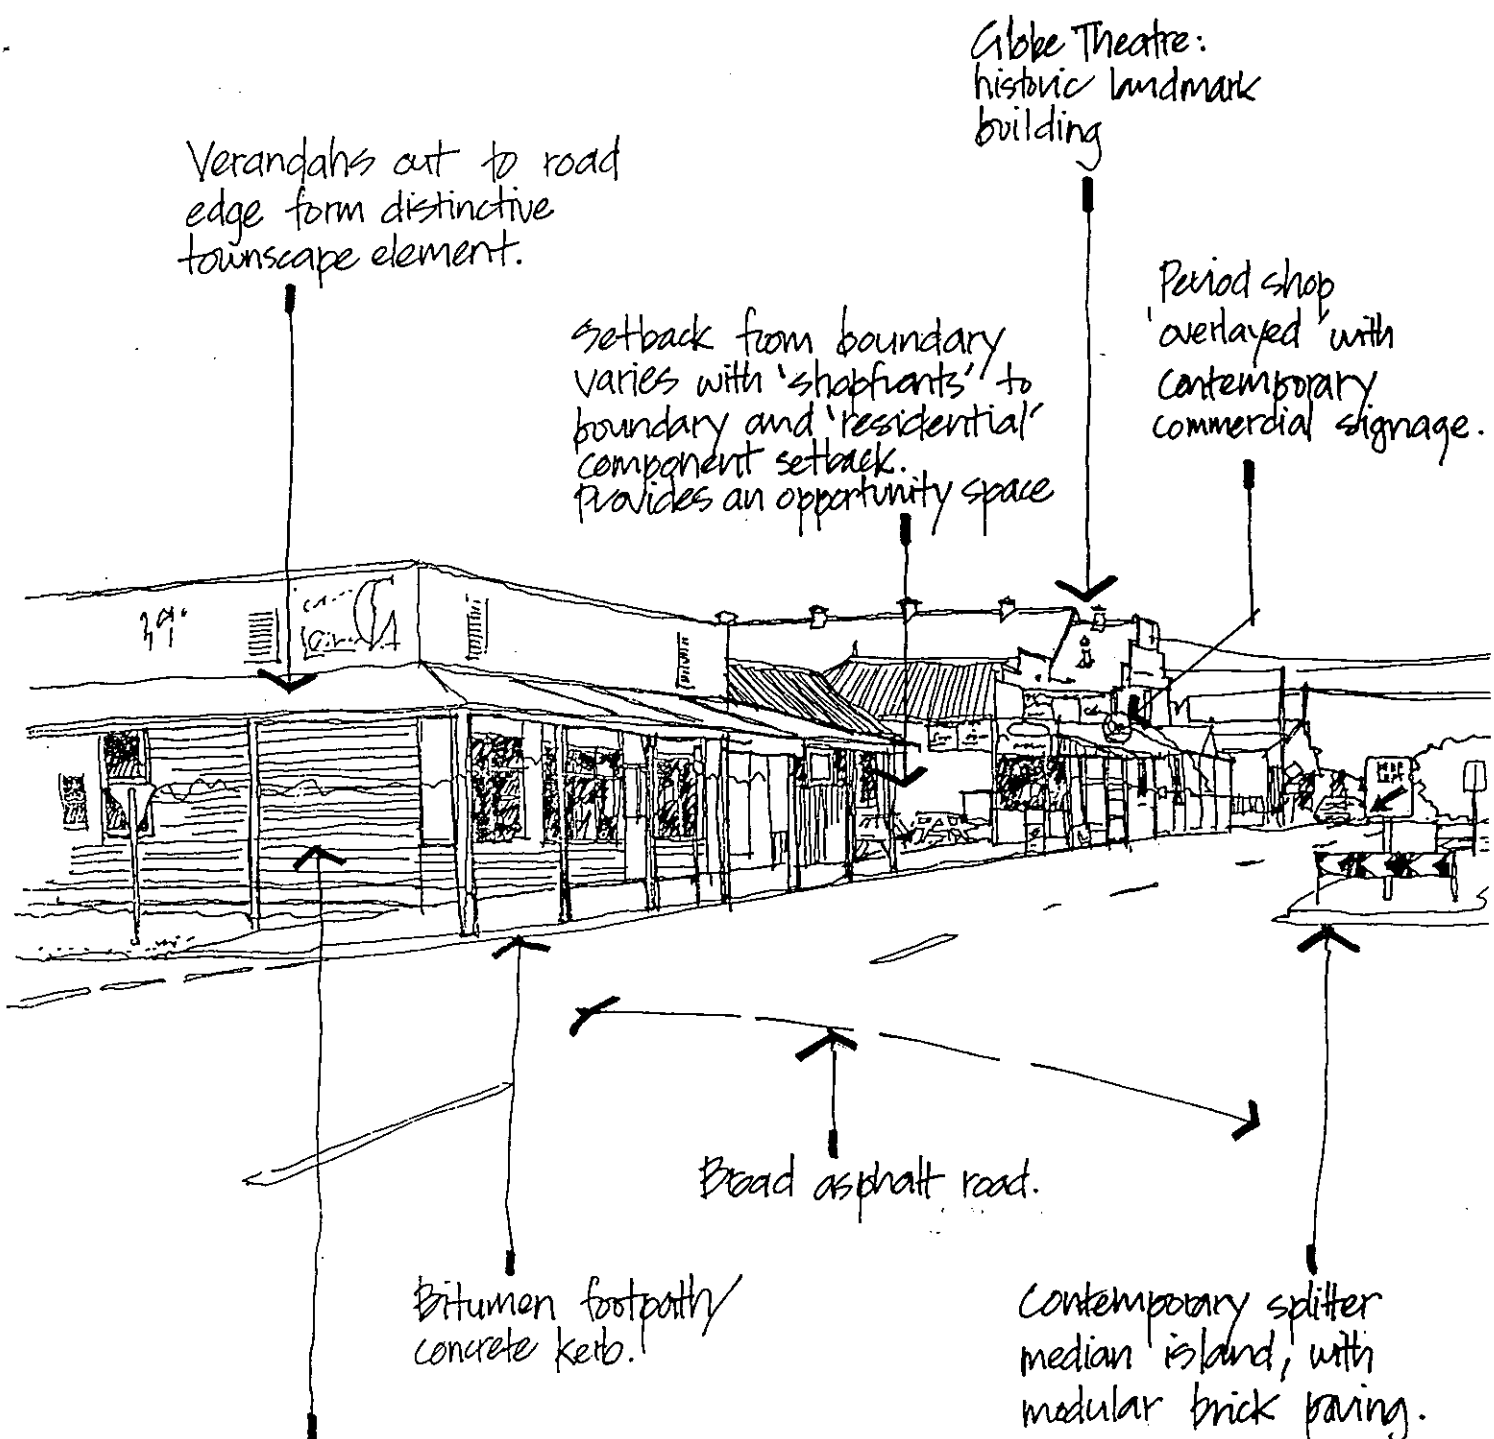 Globe Theatre:
historic landmark
building
Verandahs out to road
edge form distinctive
townscape element.
Period shop
'overlayed' with
contemporary
commercial signage.
Setback from boundary
varies with 'shopfronts' to
boundary and 'residential'
component setback.
Provides an opportunity space
KEEP
LEFT
Broad asphalt road.
Bitumen footpath/
concrete kerb.
Contemporary splitter
median island, with
modular brick paving.